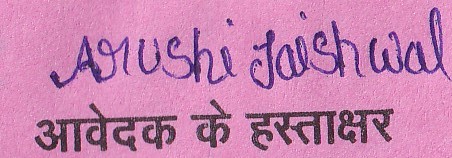 Arushi Jaishwal
आवेदक के हस्ताक्षर